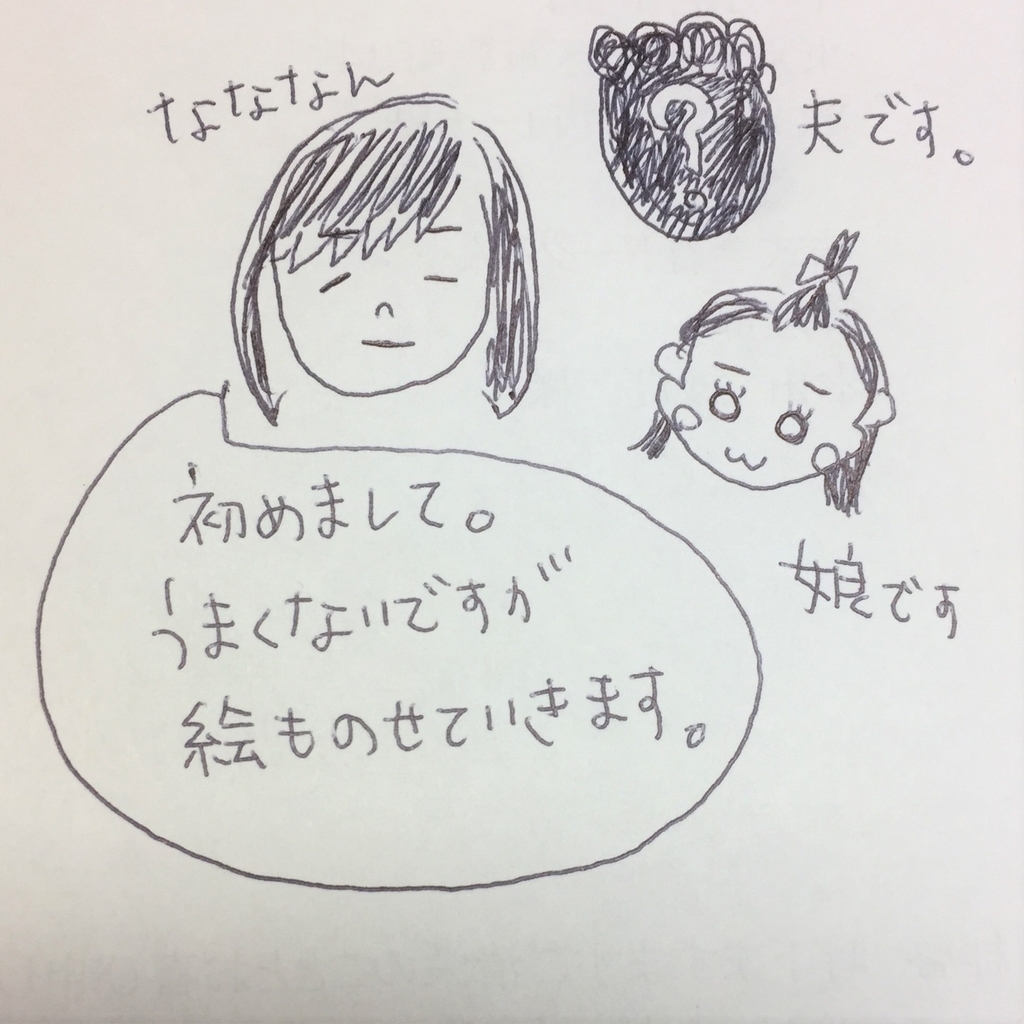 ななななん
夫です。
娘です
初めまして。
うまくないですが
絵ものせていきます。